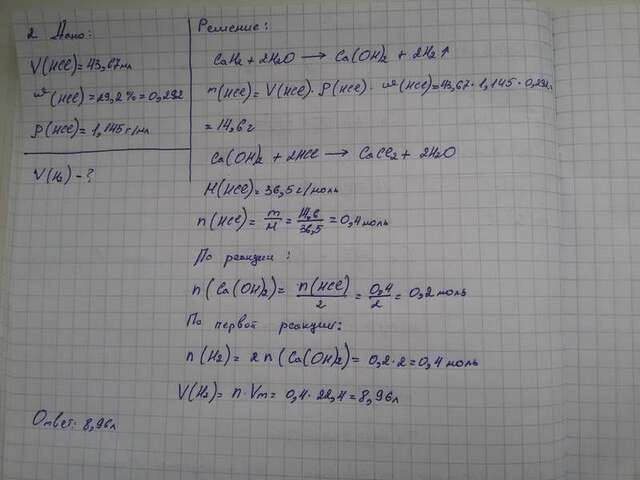 2 Дано:
V(HCl) = 43,67 мл
ω(HCl) = 29,2% = 0,292
ρ(HCl) = 1,145 г/мл
V(H₂) - ?
Решение:
CaH₂ + 2H₂O → Ca(OH)₂ + 2H₂↑
m(HCl) = V(HCl) · ρ(HCl) · ω(HCl) = 43,67 · 1,145 · 0,292
= 14,6 г
Ca(OH)₂ + 2HCl → CaCl₂ + 2H₂O
M(HCl) = 36,5 г/моль
n(HCl) = m/M = 14,6/36,5 = 0,4 моль
По реакции:
n(Ca(OH)₂) = n(HCl)/2 = 0,4/2 = 0,2 моль
По первой реакции:
n(H₂) = 2n(Ca(OH)₂) = 0,2 · 2 = 0,4 моль
V(H₂) = n · Vm = 0,4 · 22,4 = 8,96 л
Ответ: 8,96 л